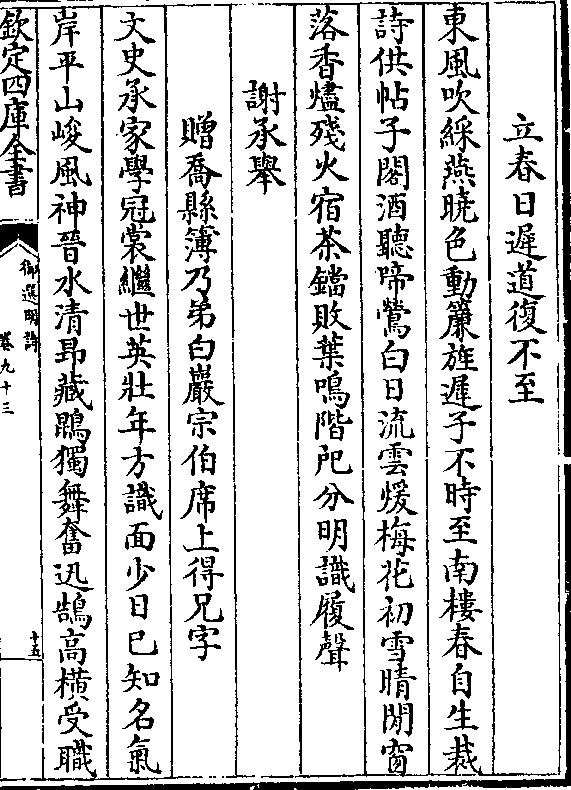 立春日遲道復不至
東風吹綵燕曉色動簾旌遲子不時至南樓春自生裁
詩供帖子閣酒聽啼鶯白日流雲煖梅花初雪晴閒窗
落香燼殘火宿茶鐺敗葉鳴階戺分明識履聲
謝承舉
贈喬縣簿乃弟白巖宗伯席上得兄字
文史承家學冠裳繼世英壯年方識面少日已知名氣
岸平山峻風神晉水清昻藏鵾獨舞奮迅鵠高橫受職
欽定四庫全書
御選明詩
卷九十三
十五